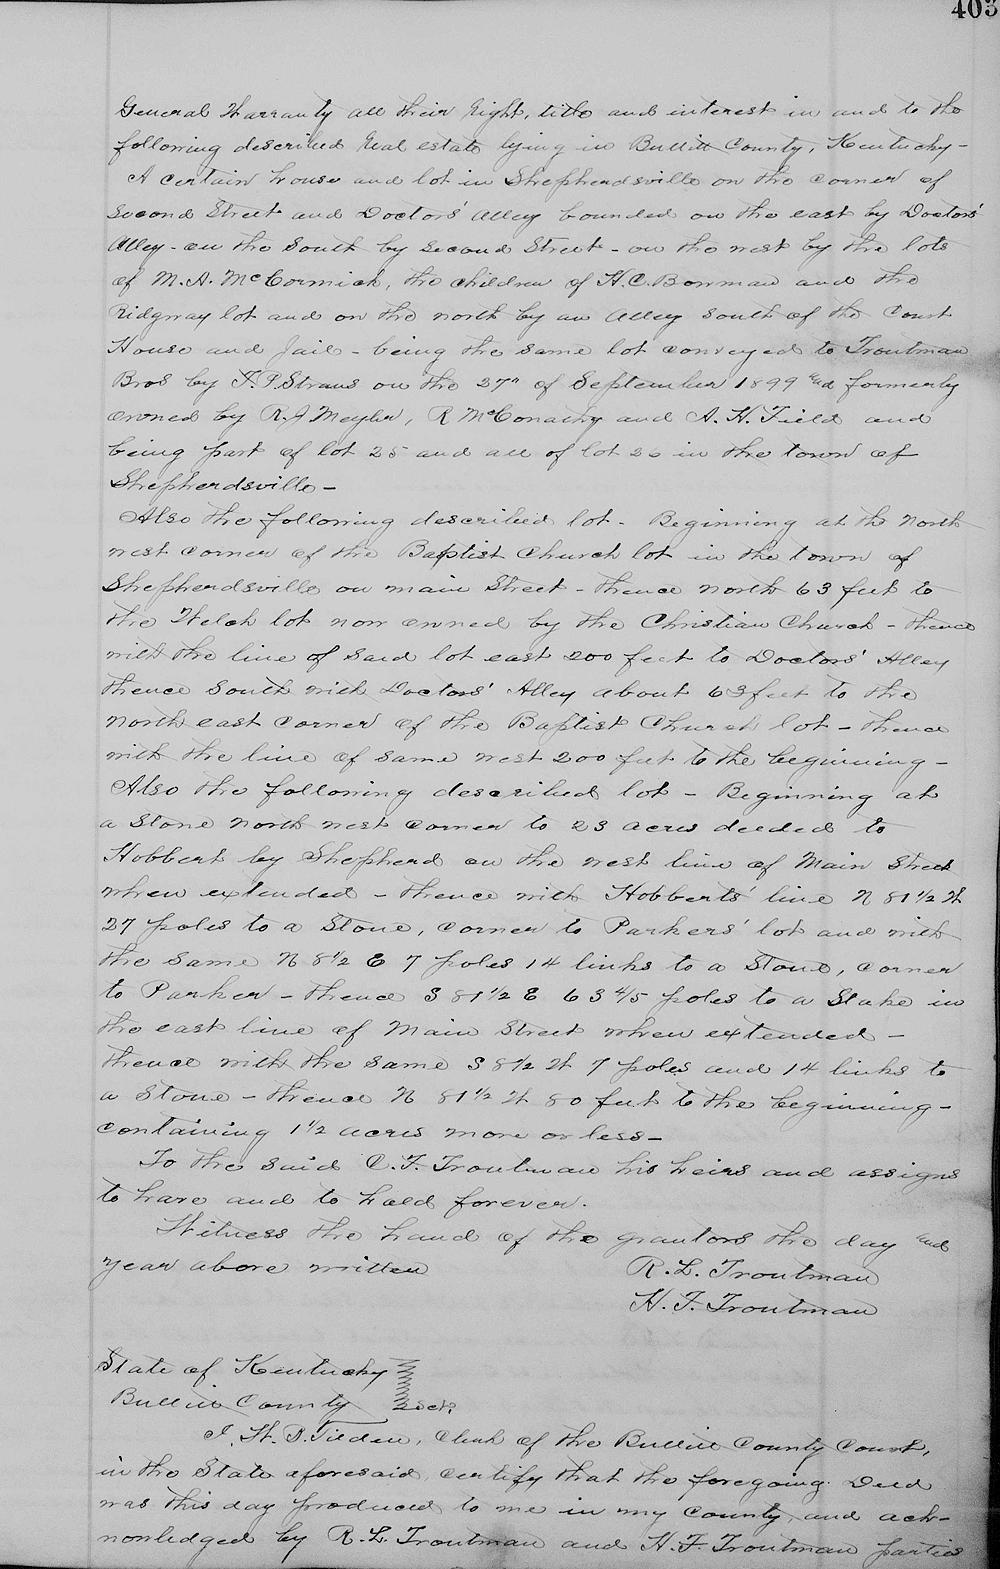 403
General Warranty all their right, title and interest in and to the
following described real estate lying in Bullitt County, Kentucky -
A certain house and lot in Shepherdsville on the corner of
Second Street and Doctors' Alley bounded on the east by Doctors'
Alley - on the South by Second Street - on the west by the lots
of M. A. McCormick, the children of H. C. Bowman and the
Ridgway lot and on the north by an alley south of the Court
House and Jail - being the same lot conveyed to Troutman
Bros by J. P. Straus on the 27" of September 1899 and formerly
owned by R. J Meyler, R McConathy and A. H. Field and
being part of lot 25 and all of lot 26 in the town of
Shepherdsville -
Also the following described lot - Beginning at the North
west corner of the Baptist Church lot in the town of
Shepherdsville on main Street - thence north 63 feet to
the Welch lot now owned by the Christian Church - thence
with the line of said lot east 200 feet to Doctors' Alley
thence South with Doctors' Alley about 63 feet to the
North east corner of the Baptist Church lot - thence
with the line of same west 200 feet to the beginning -
Also the following described lot - Beginning at
a Stone north west corner to 23 acres deeded to
Hobbert by Shepherd on the west line of Main Street
when extended - thence with Hobberts' line N 81 1/2 W
27 poles to a Stone, corner to Parkers' lot and with
the same N 8 1/2 E 7 poles 14 links to a Stone, corner
to Parker - thence S 81 1/2 E 63 4/5 poles to a Stake in
the east line of Main Street when extended -
thence with the same S 8 1/2 W 7 poles and 14 links to
a Stone - thence N 81 1/2 W 80 feet to the beginning -
containing 1 1/2 acres more or less -
To the said C. F. Troutman his heirs and assigns
to have and to hold forever.
Witness the hand of the grantors the day and
year above written
R. L. Troutman
H. F. Troutman
State of Kentucky
Bullitt County Sct.
I, W. D. Tilden, Clerk of the Bullitt County Court,
in the State aforesaid, certify that the foregoing Deed
was this day produced to me in my County, and ack-
nowledged by R. L. Troutman and H. F. Troutman parties